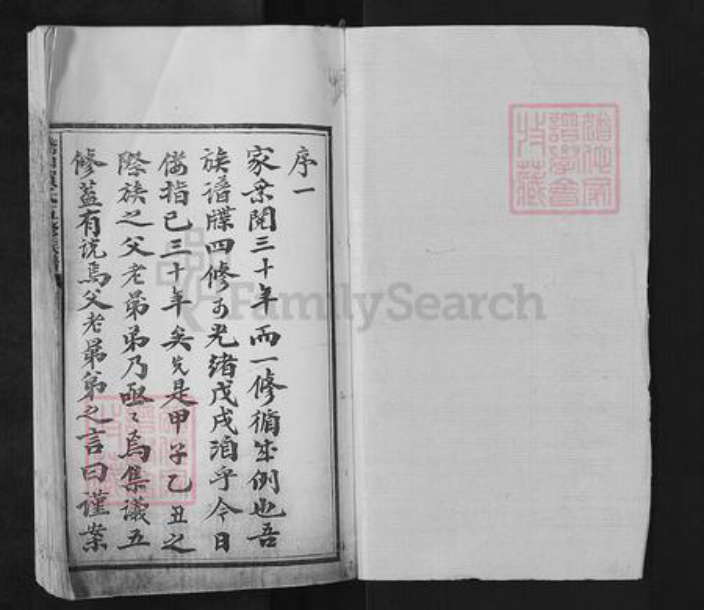 序一
家乘閱三十年而一修循成例也吾
族譜牒四修于光緒戊戌洎乎今日
僂指已三十年矣先是甲子乙丑之
際族之父老昆弟乃亟亟焉集議五
修蓋有說焉父老昆弟之言曰謹案
FamilySearch